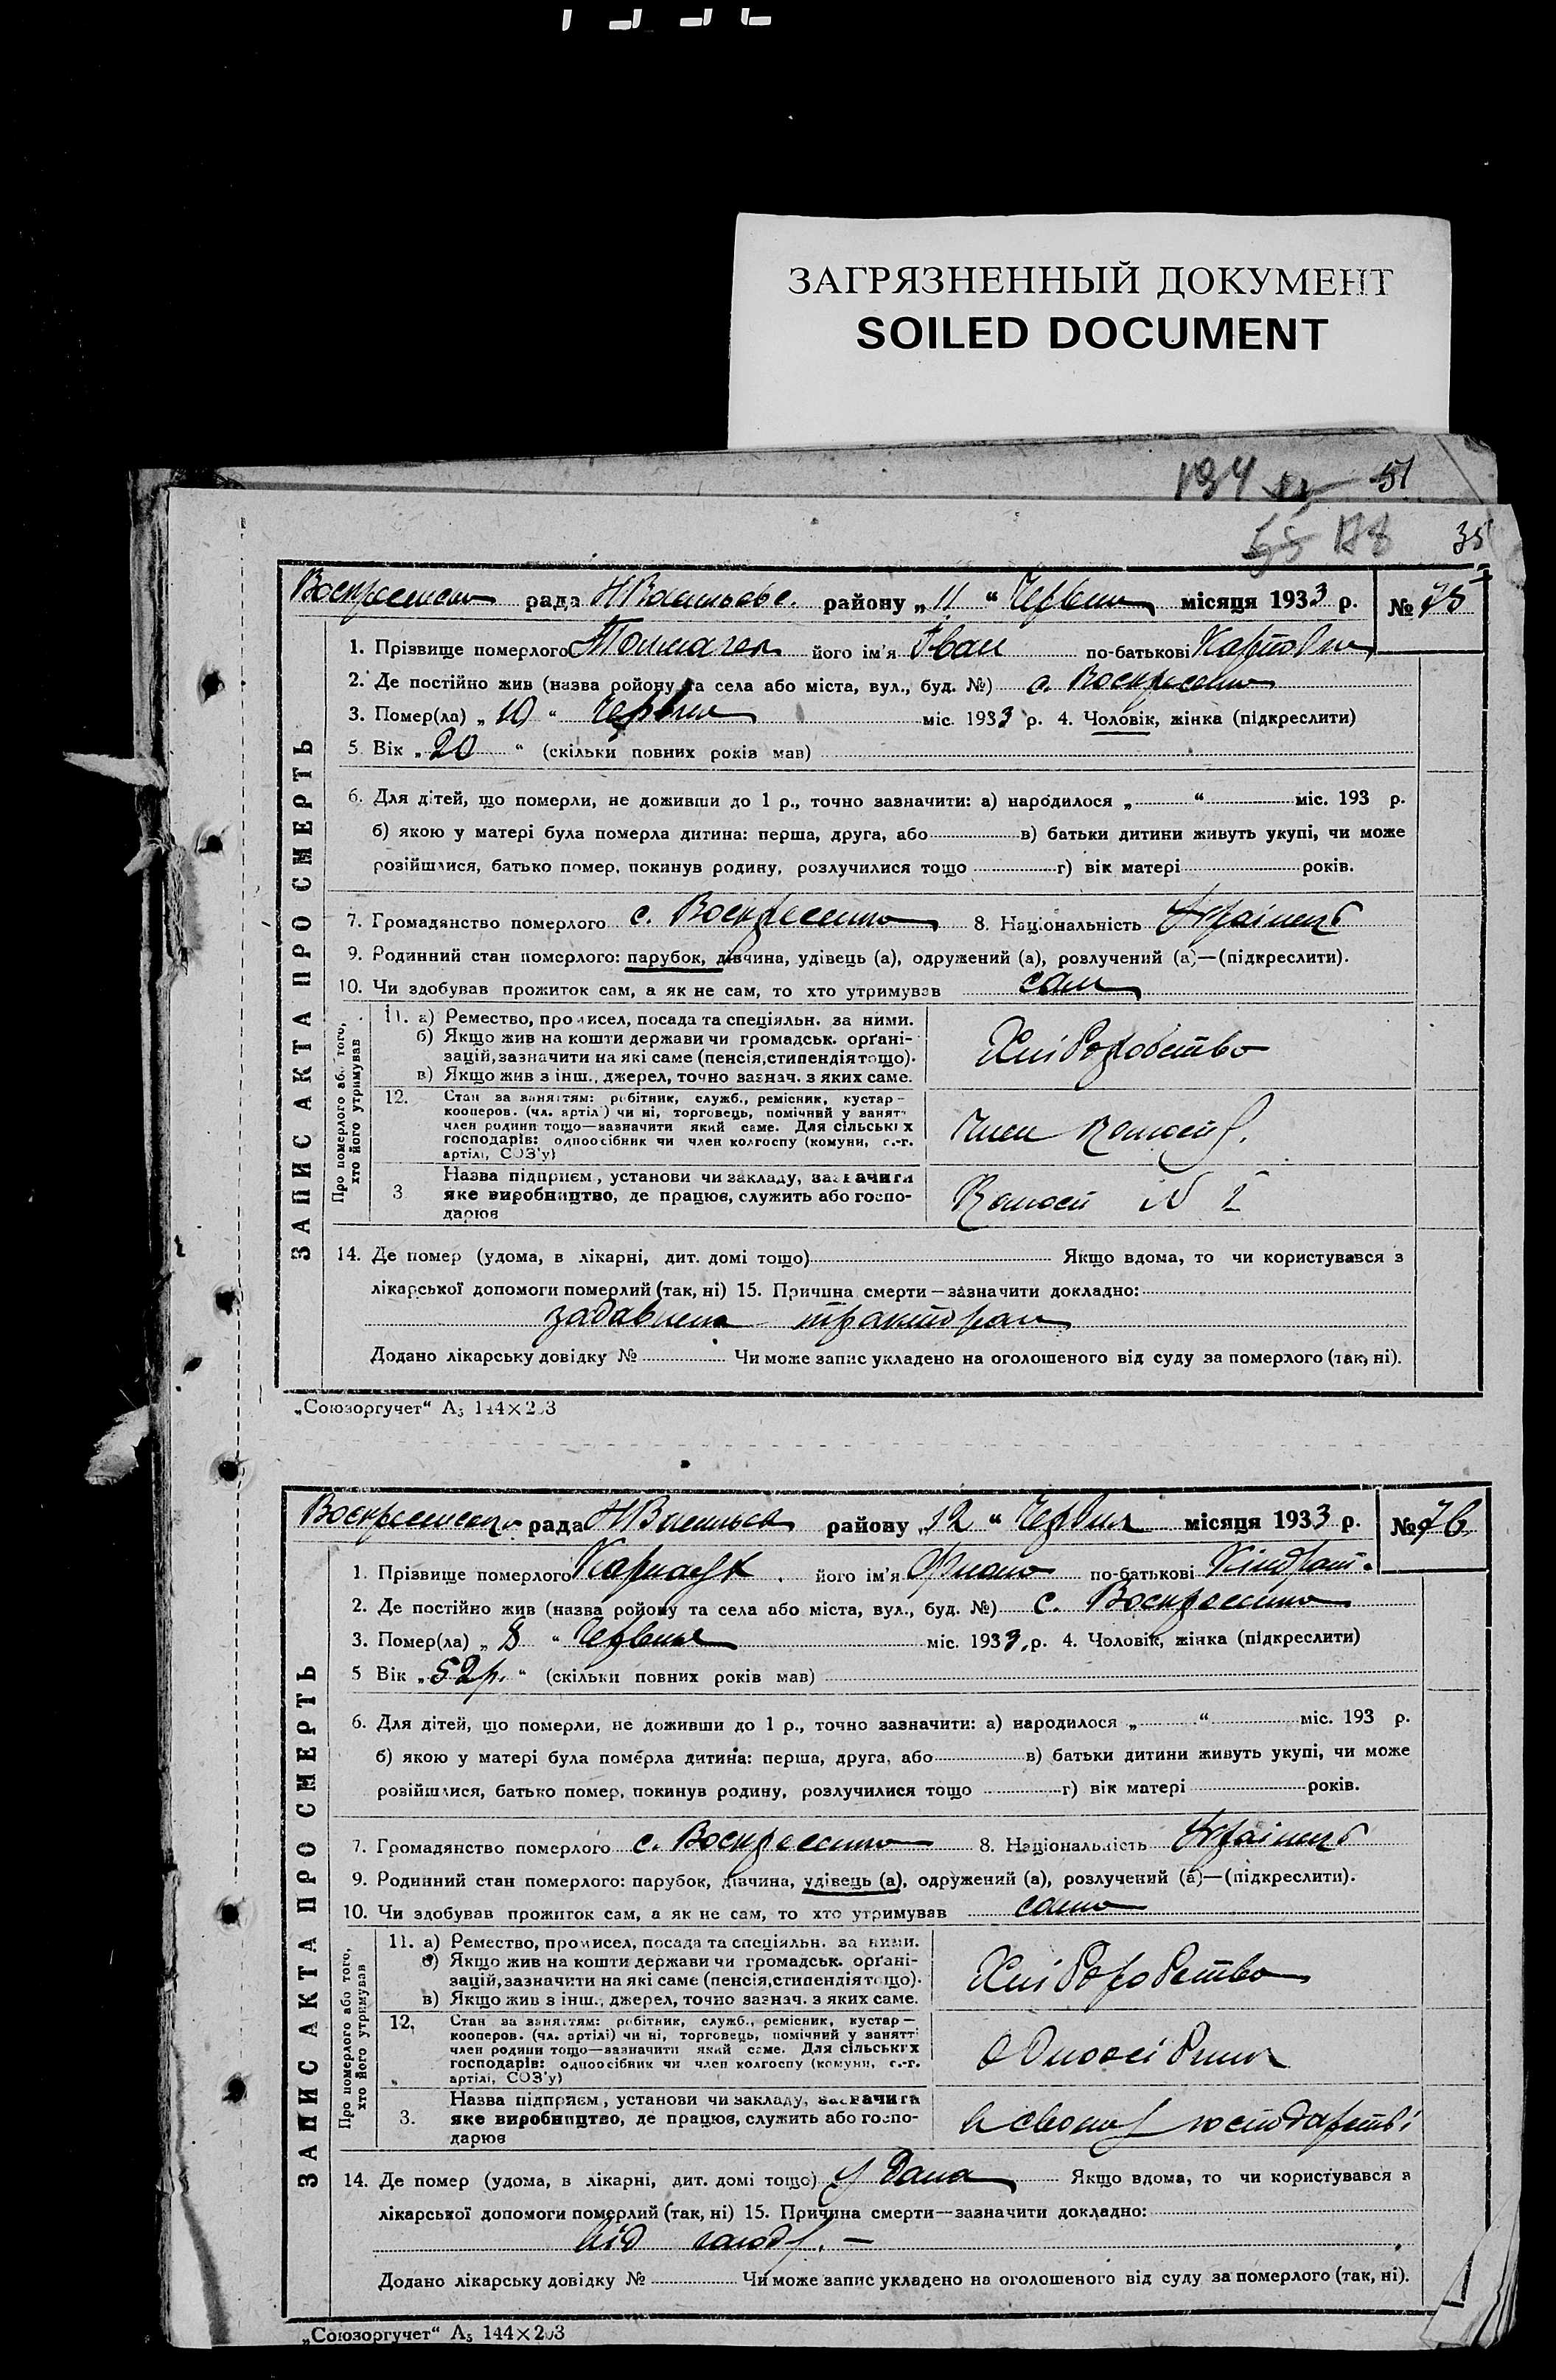 ЗАГРЯЗНЕННЫЙ ДОКУМЕНТ
SOILED DOCUMENT
194 51
55 188 35
ЗАПИС АКТА ПРО СМЕРТЬ
рада району „ 11 “ Червня місяця 1933 р. № 75
1. Прізвище померлого його ім'я Іван по-батькові
2. Де постійно жив (назва ройону та села або міста, вул., буд. №) с.
3. Помер(ла) „ 10 “ Червня міс. 1933 р. 4. Чоловік, жінка (підкреслити)
5 Вік „ 20 “ (скільки повних років мав)
6. Для дітей, що померли, не доживши до 1 р., точно зазначити: а) народилося „ “ міс. 193 р.
б) якою у матері була померла дитина: перша, друга, або в) батьки дитини живуть укупі, чи може
розійшлися, батько помер, покинув родину, розлучилися тощо г) вік матері років.
7. Громадянство померлого с. 8. Національність Українець
9. Родинний стан померлого: парубок, дівчина, удівець (а), одружений (а), розлучений (а)—(підкреслити).
10. Чи здобував прожиток сам, а як не сам, то хто утримував сам
Про померлого або того, хто його утримував
11. а) Ремество, промисел, посада та спеціяльн. за ними.
б) Якщо жив на кошти держави чи громадськ. орґані-
зацій, зазначити на які саме (пенсія, стипендія тощо).
в) Якщо жив з інш., джерел, точно зазнач. з яких саме.
Хліборобство
12. Стан за заняттям: робітник, служб., ремісник, кустар—
кооперов. (чл. артілі) чи ні, торговець, помічний у занятті
член родини тощо—зазначити який саме. Для сільських
господарів: одноосібник чи член колгоспу (комуни, с.-г.
артілі, СОЗ'у)
Член
3 Назва підприєм, установи чи закладу, зазначити
яке виробництво, де працює, служить або госпо-
дарює
№ 1
14. Де помер (удома, в лікарні, дит. домі тощо) Якщо вдома, то чи користувався з
лікарської допомоги померлий (так, ні) 15. Причина смерти—зазначити докладно:
трактором
Додано лікарську довідку № Чи може запис укладено на оголошеного від суду за померлого (так, ні).
„Союзоргучет“ А5 144×203
ЗАПИС АКТА ПРО СМЕРТЬ
рада району „ 12 “ Червня місяця 1933 р. № 76
1. Прізвище померлого Карнаух його ім'я по-батькові Кіндрат.
2. Де постійно жив (назва ройону та села або міста, вул., буд. №) с.
3. Помер(ла) „ 8 “ Червня міс. 1933 р. 4. Чоловік, жінка (підкреслити)
5 Вік „ 52р. “ (скільки повних років мав)
6. Для дітей, що померли, не доживши до 1 р., точно зазначити: а) народилося „ “ міс. 193 р.
б) якою у матері була померла дитина: перша, друга, або в) батьки дитини живуть укупі, чи може
розійшлися, батько помер, покинув родину, розлучилися тощо г) вік матері років.
7. Громадянство померлого с. 8. Національність Українець
9. Родинний стан померлого: парубок, дівчина, удівець (а), одружений (а), розлучений (а)—(підкреслити).
10. Чи здобував прожиток сам, а як не сам, то хто утримував сама
Про померлого або того, хто його утримував
11. а) Ремество, промисел, посада та спеціяльн. за ними.
б) Якщо жив на кошти держави чи громадськ. орґані-
зацій, зазначити на які саме (пенсія, стипендія тощо).
в) Якщо жив з інш., джерел, точно зазнач. з яких саме.
Хліборобство
12. Стан за заняттям: робітник, служб., ремісник, кустар—
кооперов. (чл. артілі) чи ні, торговець, помічний у занятті
член родини тощо—зазначити який саме. Для сільських
господарів: одноосібник чи член колгоспу (комуни, с.-г.
артілі, СОЗ'у)
Одноосібник
3. Назва підприєм, установи чи закладу, зазначити
яке виробництво, де працює, служить або госпо-
дарює
в свому господарстві
14. Де помер (удома, в лікарні, дит. домі тощо) у дома Якщо вдома, то чи користувався з
лікарської допомоги померлий (так, ні) 15. Причина смерти—зазначити докладно:
від голоду. —
Додано лікарську довідку № Чи може запис укладено на оголошеного від суду за померлого (так, ні).
„Союзоргучет“ А5 144×203